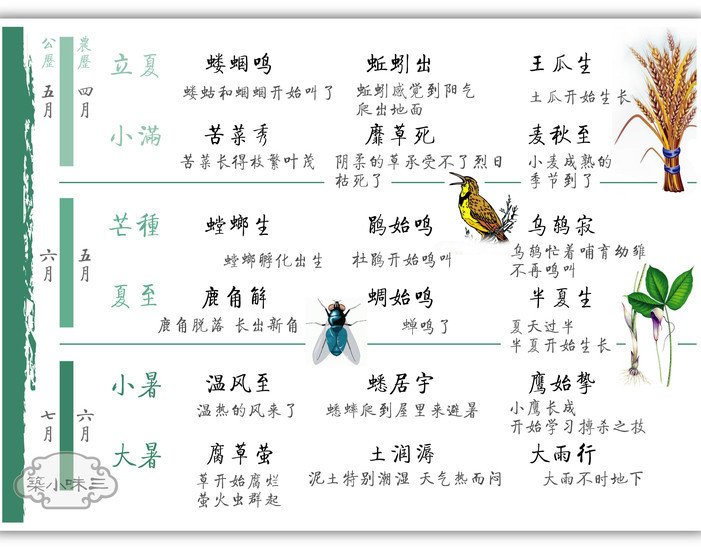 公歷
農歷
五月
四月
立夏
蝼蝈鸣
蚯蚓出
王瓜生
蝼蛄和蝈蝈开始叫了
蚯蚓感觉到阳气
爬出地面
土瓜开始生长
小滿
苦菜秀
靡草死
麦秋至
苦菜长得枝繁叶茂
阴柔的草承受不了烈日
枯死了
小麦成熟的
季节到了
六月
五月
芒種
螳螂生
鹃始鸣
乌鹊寂
螳螂孵化出生
杜鹃开始鸣叫
乌鹊忙着哺育幼雏
不再鸣叫
夏至
鹿角解
蜩始鸣
半夏生
鹿角脱落 长出新角
蝉鸣了
夏天过半
半夏开始生长
七月
六月
小暑
温风至
蟋居宇
鹰始挚
温热的风来了
蟋蟀爬到屋里来避暑
小鹰长成
开始学习搏杀之技
大暑
腐草萤
土润溽
大雨行
草开始腐烂
萤火虫群起
泥土特别潮湿 天气热而闷
大雨不时地下
築小味三